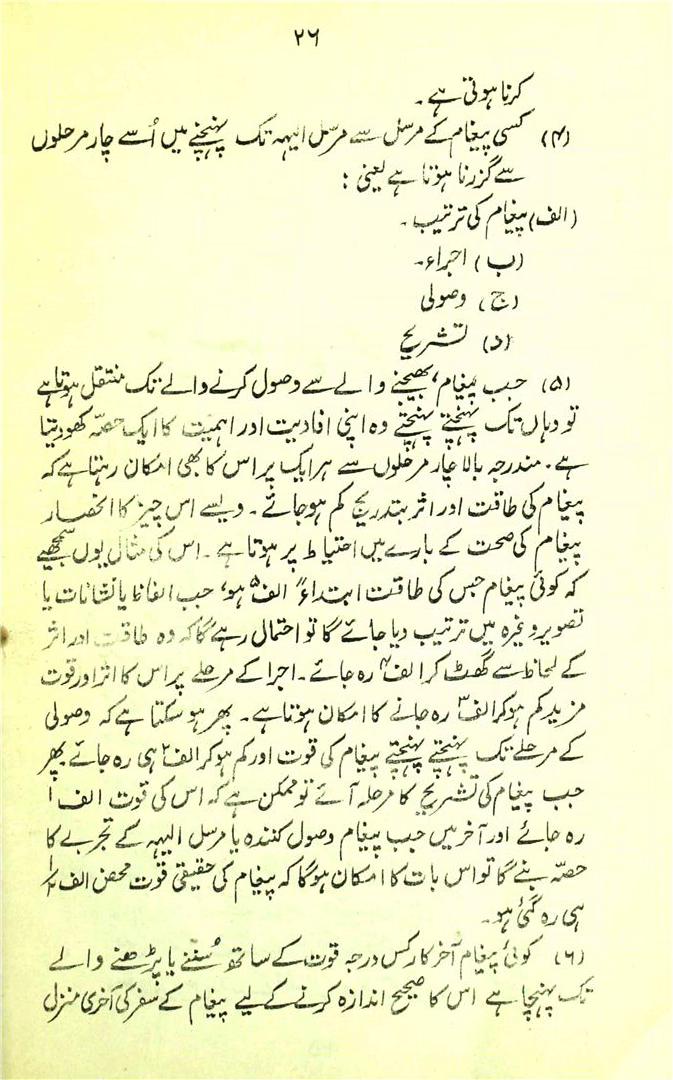 ۲۶
کرنا ہوتی ہے۔
(۴) کسی پیغام کے مرسل سے مرسل الیہہ تک پہنچنے میں اُسے چار مرحلوں
سے گزرنا ہوتا ہے یعنی :
(الف) پیغام کی ترتیب۔
(ب) اجراء۔
(ج) وصولی
(د) تشریح
(۵) جب پیغام، بھیجنے والے سے وصول کرنے والے تک منتقل ہوتا ہے
تو وہاں تک پہنچتے پہنچتے وہ اپنی افادیت اور اہمیت کا ایک حصّہ کھو دیتا
ہے۔ مندرجہ بالا چار مرحلوں سے ہر ایک پر اس کا بھی امکان رہتا ہے کہ
پیغام کی طاقت اور اثر بتدریج کم ہو جائے۔ ویسے اس چیز کا انحصار
پیغام کی صحت کے بارے میں احتیاط پر ہوتا ہے۔ اس کی مثال یوں سمجھیے
کہ کوئی پیغام جس کی طاقت ابتداءً الف۵ ہو، جب الفاظ یا نشانات یا
تصویر وغیرہ میں ترتیب دیا جائے گا تو احتمال رہے گا کہ وہ طاقت اور اثر
کے لحاظ سے گھٹ کر الف۴ رہ جائے۔ اجرا کے مرحلے پر اس کا اثر اور قوت
مزید کم ہو کر الف۳ رہ جانے کا امکان ہوتا ہے۔ پھر ہو سکتا ہے کہ وصولی
کے مرحلے تک پہنچتے پہنچتے پیغام کی قوت اور کم ہو کر الف۲ ہی رہ جائے پھر
جب پیغام کی تشریح کا مرحلہ آئے تو ممکن ہے کہ اس کی قوت الف۱
رہ جائے اور آخر میں جب پیغام وصول کنندہ یا مرسل الیہہ کے تجربے کا
حصّہ بنے گا تو اس بات کا امکان ہوگا کہ پیغام کی حقیقی قوت محض الف ۱/۲
ہی رہ گئی ہو۔
(۶) کوئی پیغام آخر کار کس درجہ قوت کے ساتھ سُننے یا پڑھنے والے
تک پہنچا ہے اس کا صحیح اندازہ کرنے کے لیے پیغام کے سفر کی آخری منزل